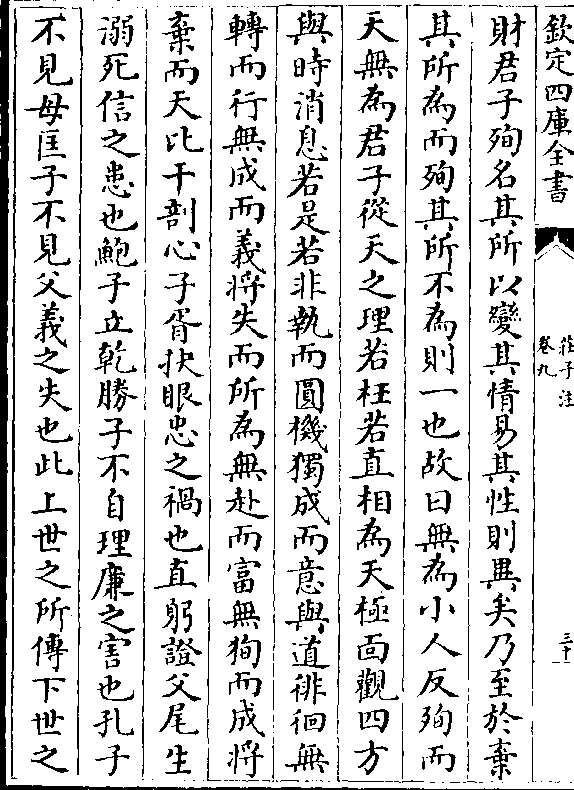 欽定四庫全書
莊子注
卷九
三十一
財君子殉名其所以變其情易其性則異矣乃至於棄
其所為而殉其所不為則一也故曰無為小人反殉而
天無為君子從天之理若枉若直相為天極面觀四方
與時消息若是若非執而圓機獨成而意與道徘徊無
轉而行無成而義將失而所為無赴而富無狥而成將
棄而天比干剖心子胥抉眼忠之禍也直躬證父尾生
溺死信之患也鮑子立乾勝子不自理廉之害也孔子
不見母匡子不見父義之失也此上世之所傳下世之